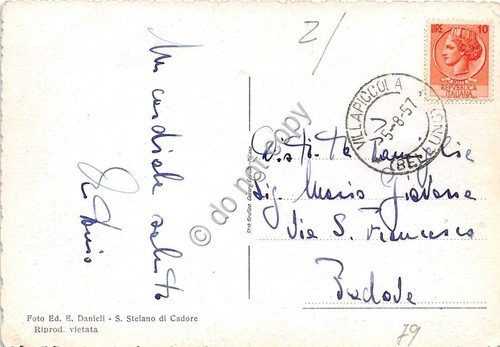 Un cordiale saluto
2/
LIRE 10
REPUBBLICA
ITALIANA
VILLAPICCOLA
5-8-57
(BL)
Dist.ta Famiglia
Sig. Mario
Via S. Francesco
Padova
Foto Ed. E. Danieli - S. Stefano di Cadore
Riprod. vietata
79
do not copy